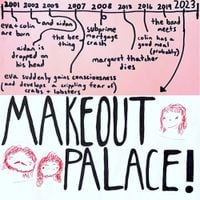 2001 2002 2005 2007 2008 2013 2016 2019 2023
eva + colin are born
and aidan
the bee thing
subprime mortgage crash
the band meets
colin has a good meal (probably)
aidan is dropped on his head
margaret thatcher dies
eva suddenly gains consciousness (and develops a crippling fear of crabs + lobsters)
MAKEOUT
PALACE!